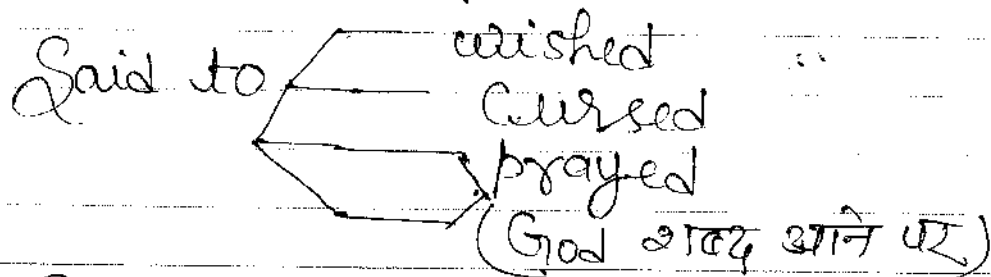 Said to wished
Cursed
prayed
(God शब्द आने पर)